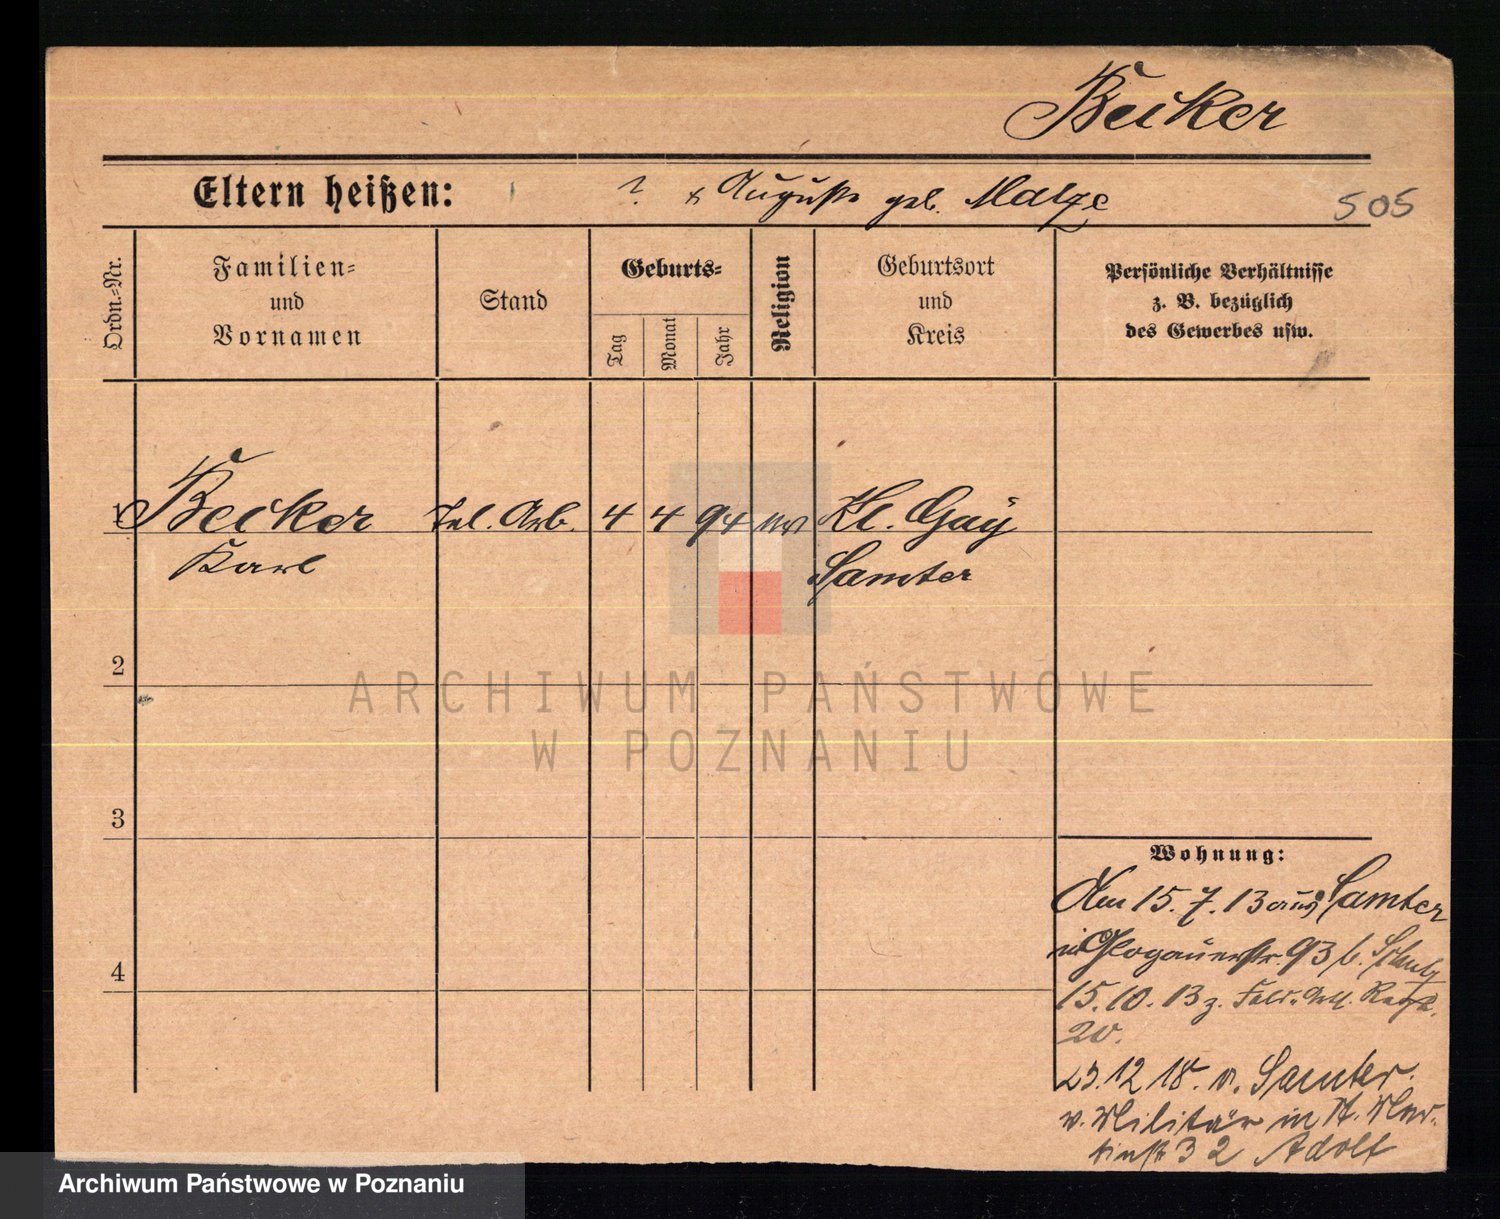 Becker
Eltern heißen: ? u. Auguste geb. Matze
505
Ordn.=Nr.
Familien=
und
Vornamen
Stand
Geburts=
Tag
Monat
Jahr
Religion
Geburtsort
und
Kreis
Persönliche Verhältnisse
z. B. bezüglich
des Gewerbes usw.
1 Becker Tel. Arb. 4 4 94 ev Kl. Gay
Karl Samter
2
3
4
Wohnung:
Am 15. 7. 13 aus Samter
in Glogauerstr. 93 b.
15. 10. 13 z. Feld. Art. Regt.
20.
23. 12 18. v. Samter
v. Militär in St.
32 Adolf
ARCHIWUM PAŃSTWOWE
W POZNANIU
Archiwum Państwowe w Poznaniu